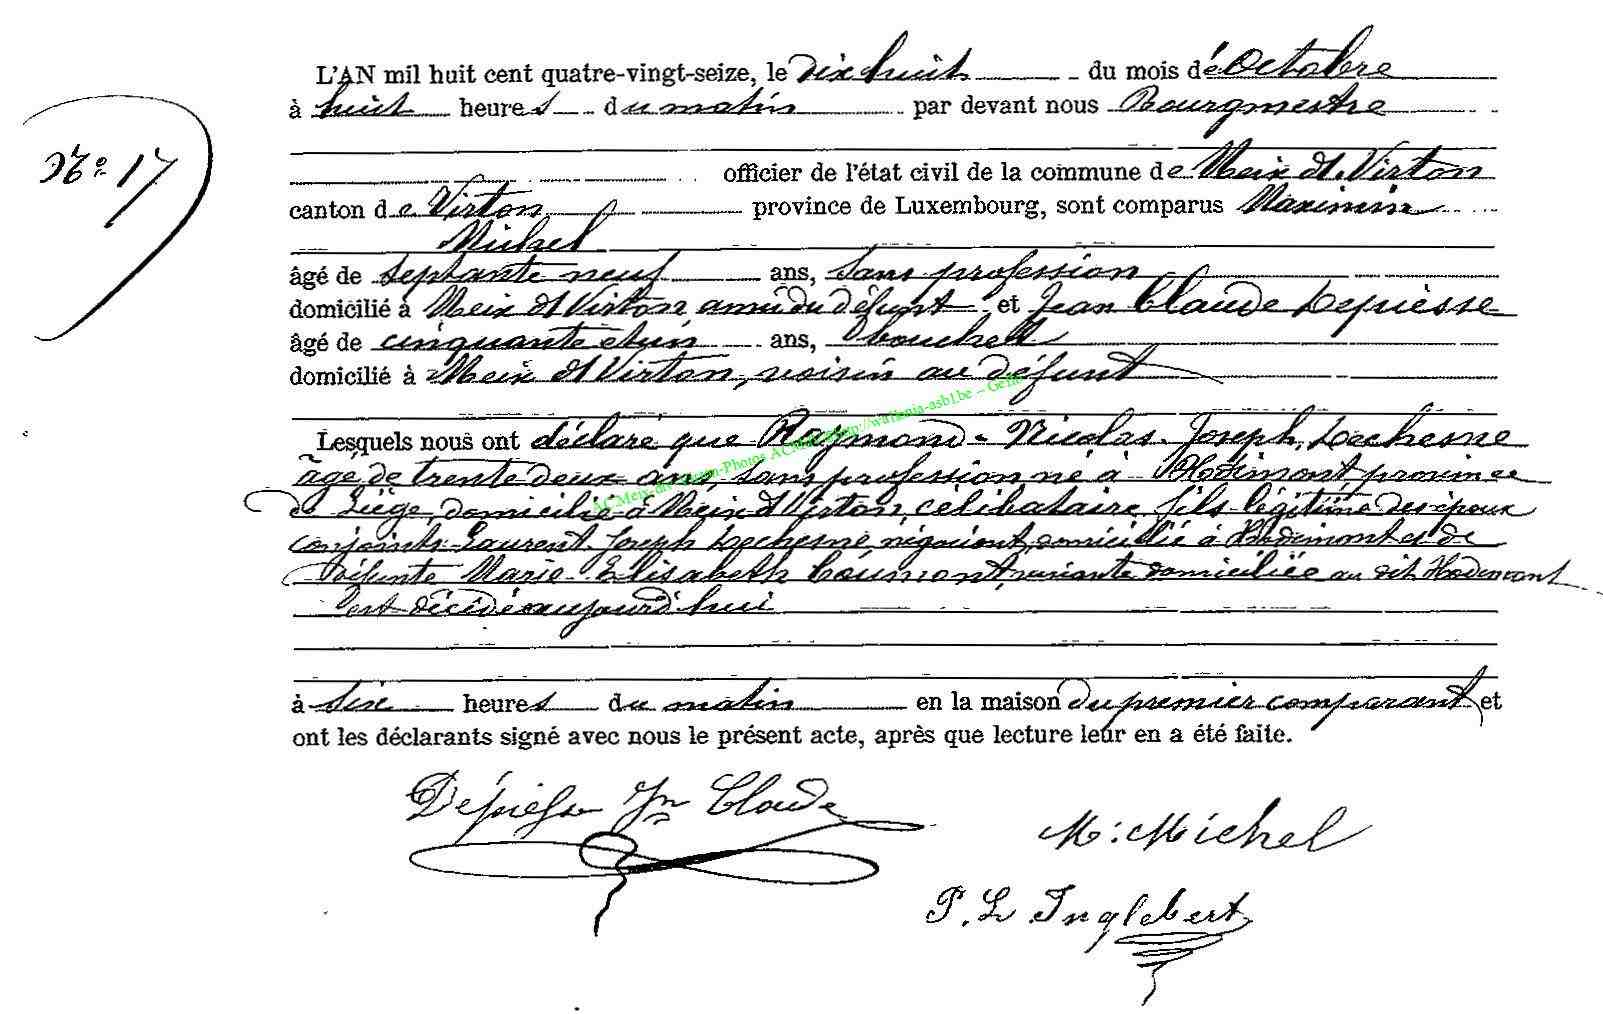 L'AN mil huit cent quatre-vingt-seize, le dix huit du mois d'Octobre
à huit heures du matin par devant nous Bourgmestre
N° 17
officier de l'état civil de la commune de Meix dt Virton
canton de Virton province de Luxembourg, sont comparus Maximin
Michel
âgé de septante neuf ans, sans profession
domicilié à Meix dt Virton ami du défunt et Jean Claude Depiesse
âgé de cinquante et un ans,
domicilié à Meix dt Virton, voisin au défunt
Lesquels nous ont déclaré que Raymond-Nicolas-Joseph, Lechesne
âgé de trente deux ans, sans profession né à Hodimont, province
de Liège, domicilié à Meix dt Virton, célibataire, fils légitime des époux
conjoints Laurent Joseph Lechesne, négociant, domicilié à Hodimont et de
défunte Marie Elisabeth domiciliée au dit Hodimont
est décédé aujourd'hui
à six heures du matin en la maison du premier comparant et
ont les déclarants signé avec nous le présent acte, après que lecture leur en a été faite.
Dépiesse Jn Claude
M. Michel
P. L. Inglebert